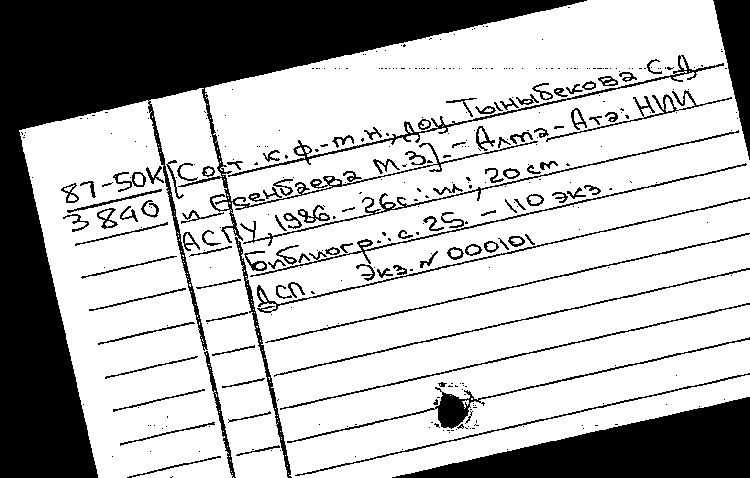 [Сост. к.ф.-м.н., доц. Тыныбекова С.Д.
87-50К и Есенбаева М.З.]. - Алма-Ата: НИИ
3840 АСПУ, 1986. - 26с.: ил.; 20 см.
Библиогр.: с. 25. - 110 экз.
ДСП. Экз. N 000101